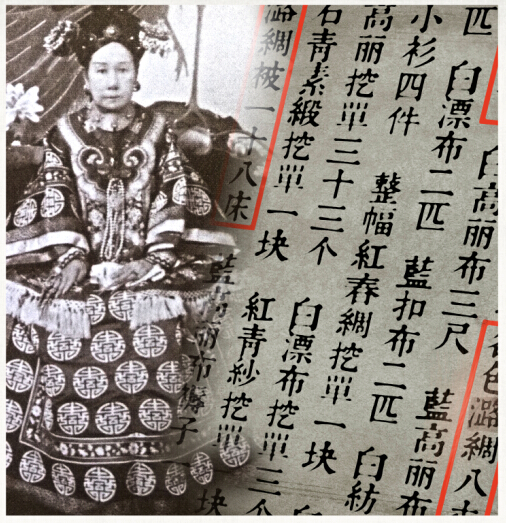 各色潞綢八床
白高丽布三尺 藍高丽布
匹 白漂布二匹 藍扣布二匹 白紡
小衫四件 整幅紅春綢挖單一块 白
高丽挖單三十三个 白漂布挖單三个
石青素緞挖單一块 紅青紗挖單一块
潞綢被一十八床 藍高丽布褥子一